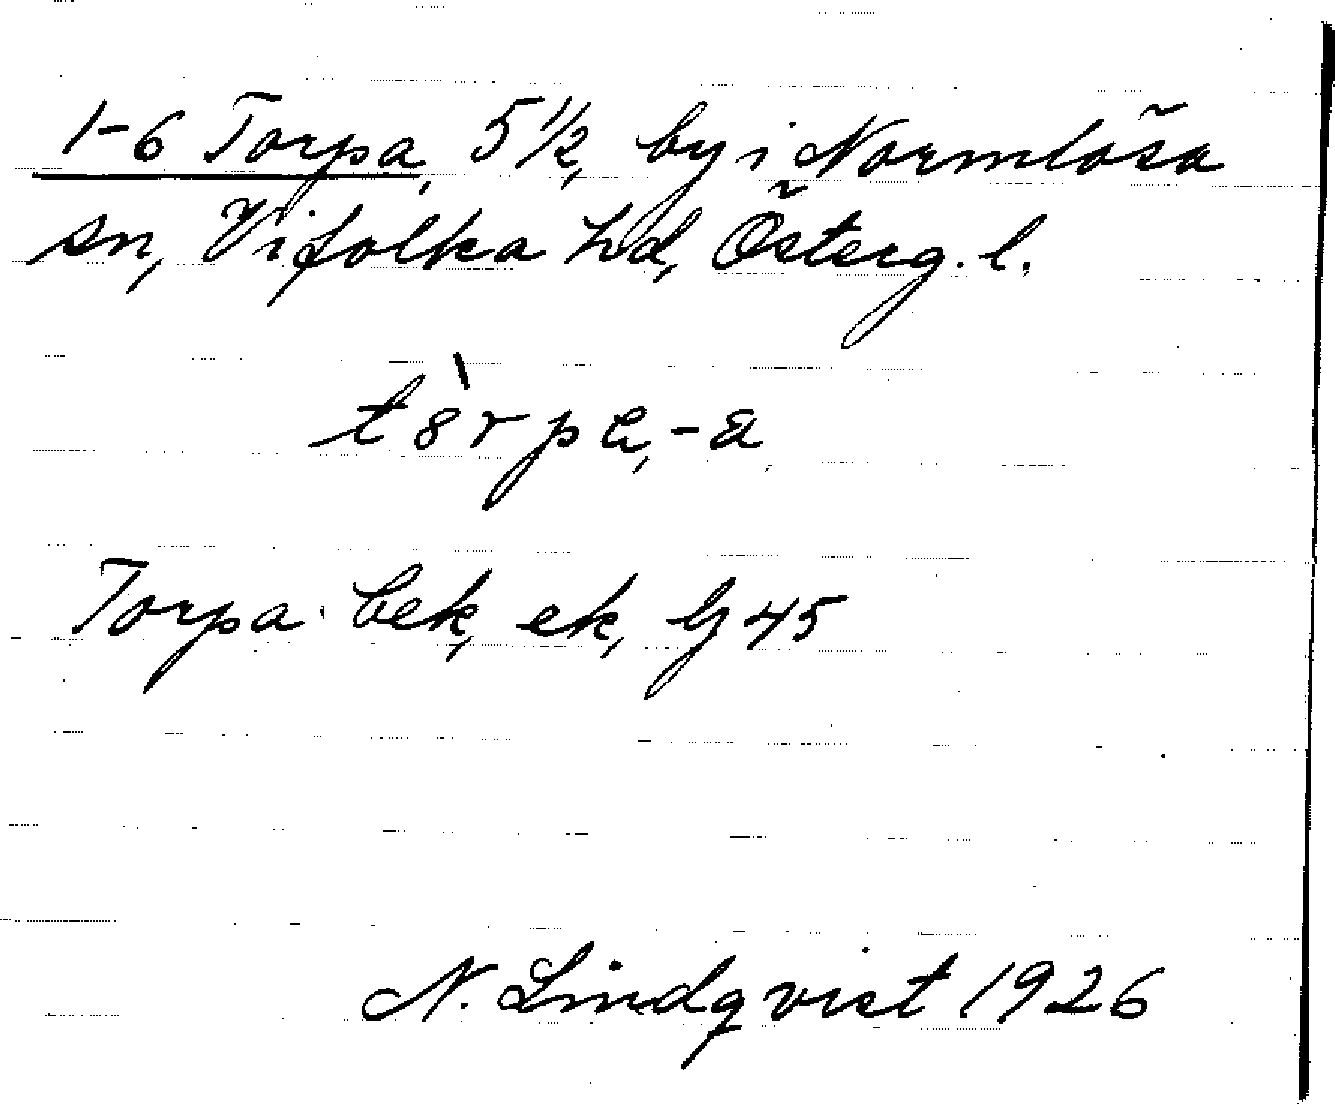 1-6 Torpa, 5 1/2, by i Normlösa
sn, Vifolka hd, Österg. l.
Torpa bek, ek, Gj 45
N. Lindqvist 1926